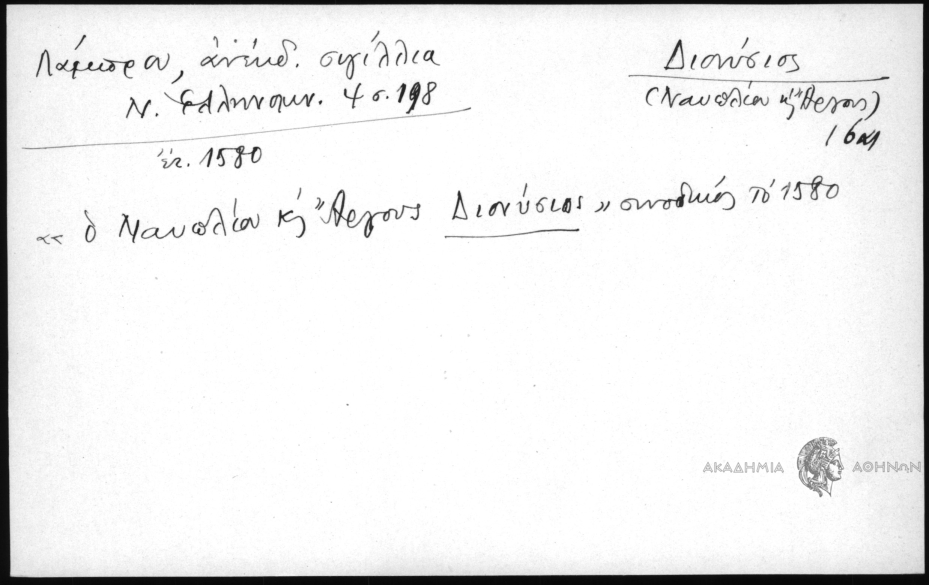 Λάμπρου, ἀνέκδ. σιγίλλια
Ν. Ἑλληνομν. 4 σ. 198
ἔτ. 1580
Διονύσιος
(Ναυπλίου κ̀ Ἄργους)
16 αι
«ὁ Ναυπλίου κ̀ Ἄργους Διονύσιος» συνοδικός τό 1580
ΑΚΑΔΗΜΙΑ ΑΘΗΝΩΝ